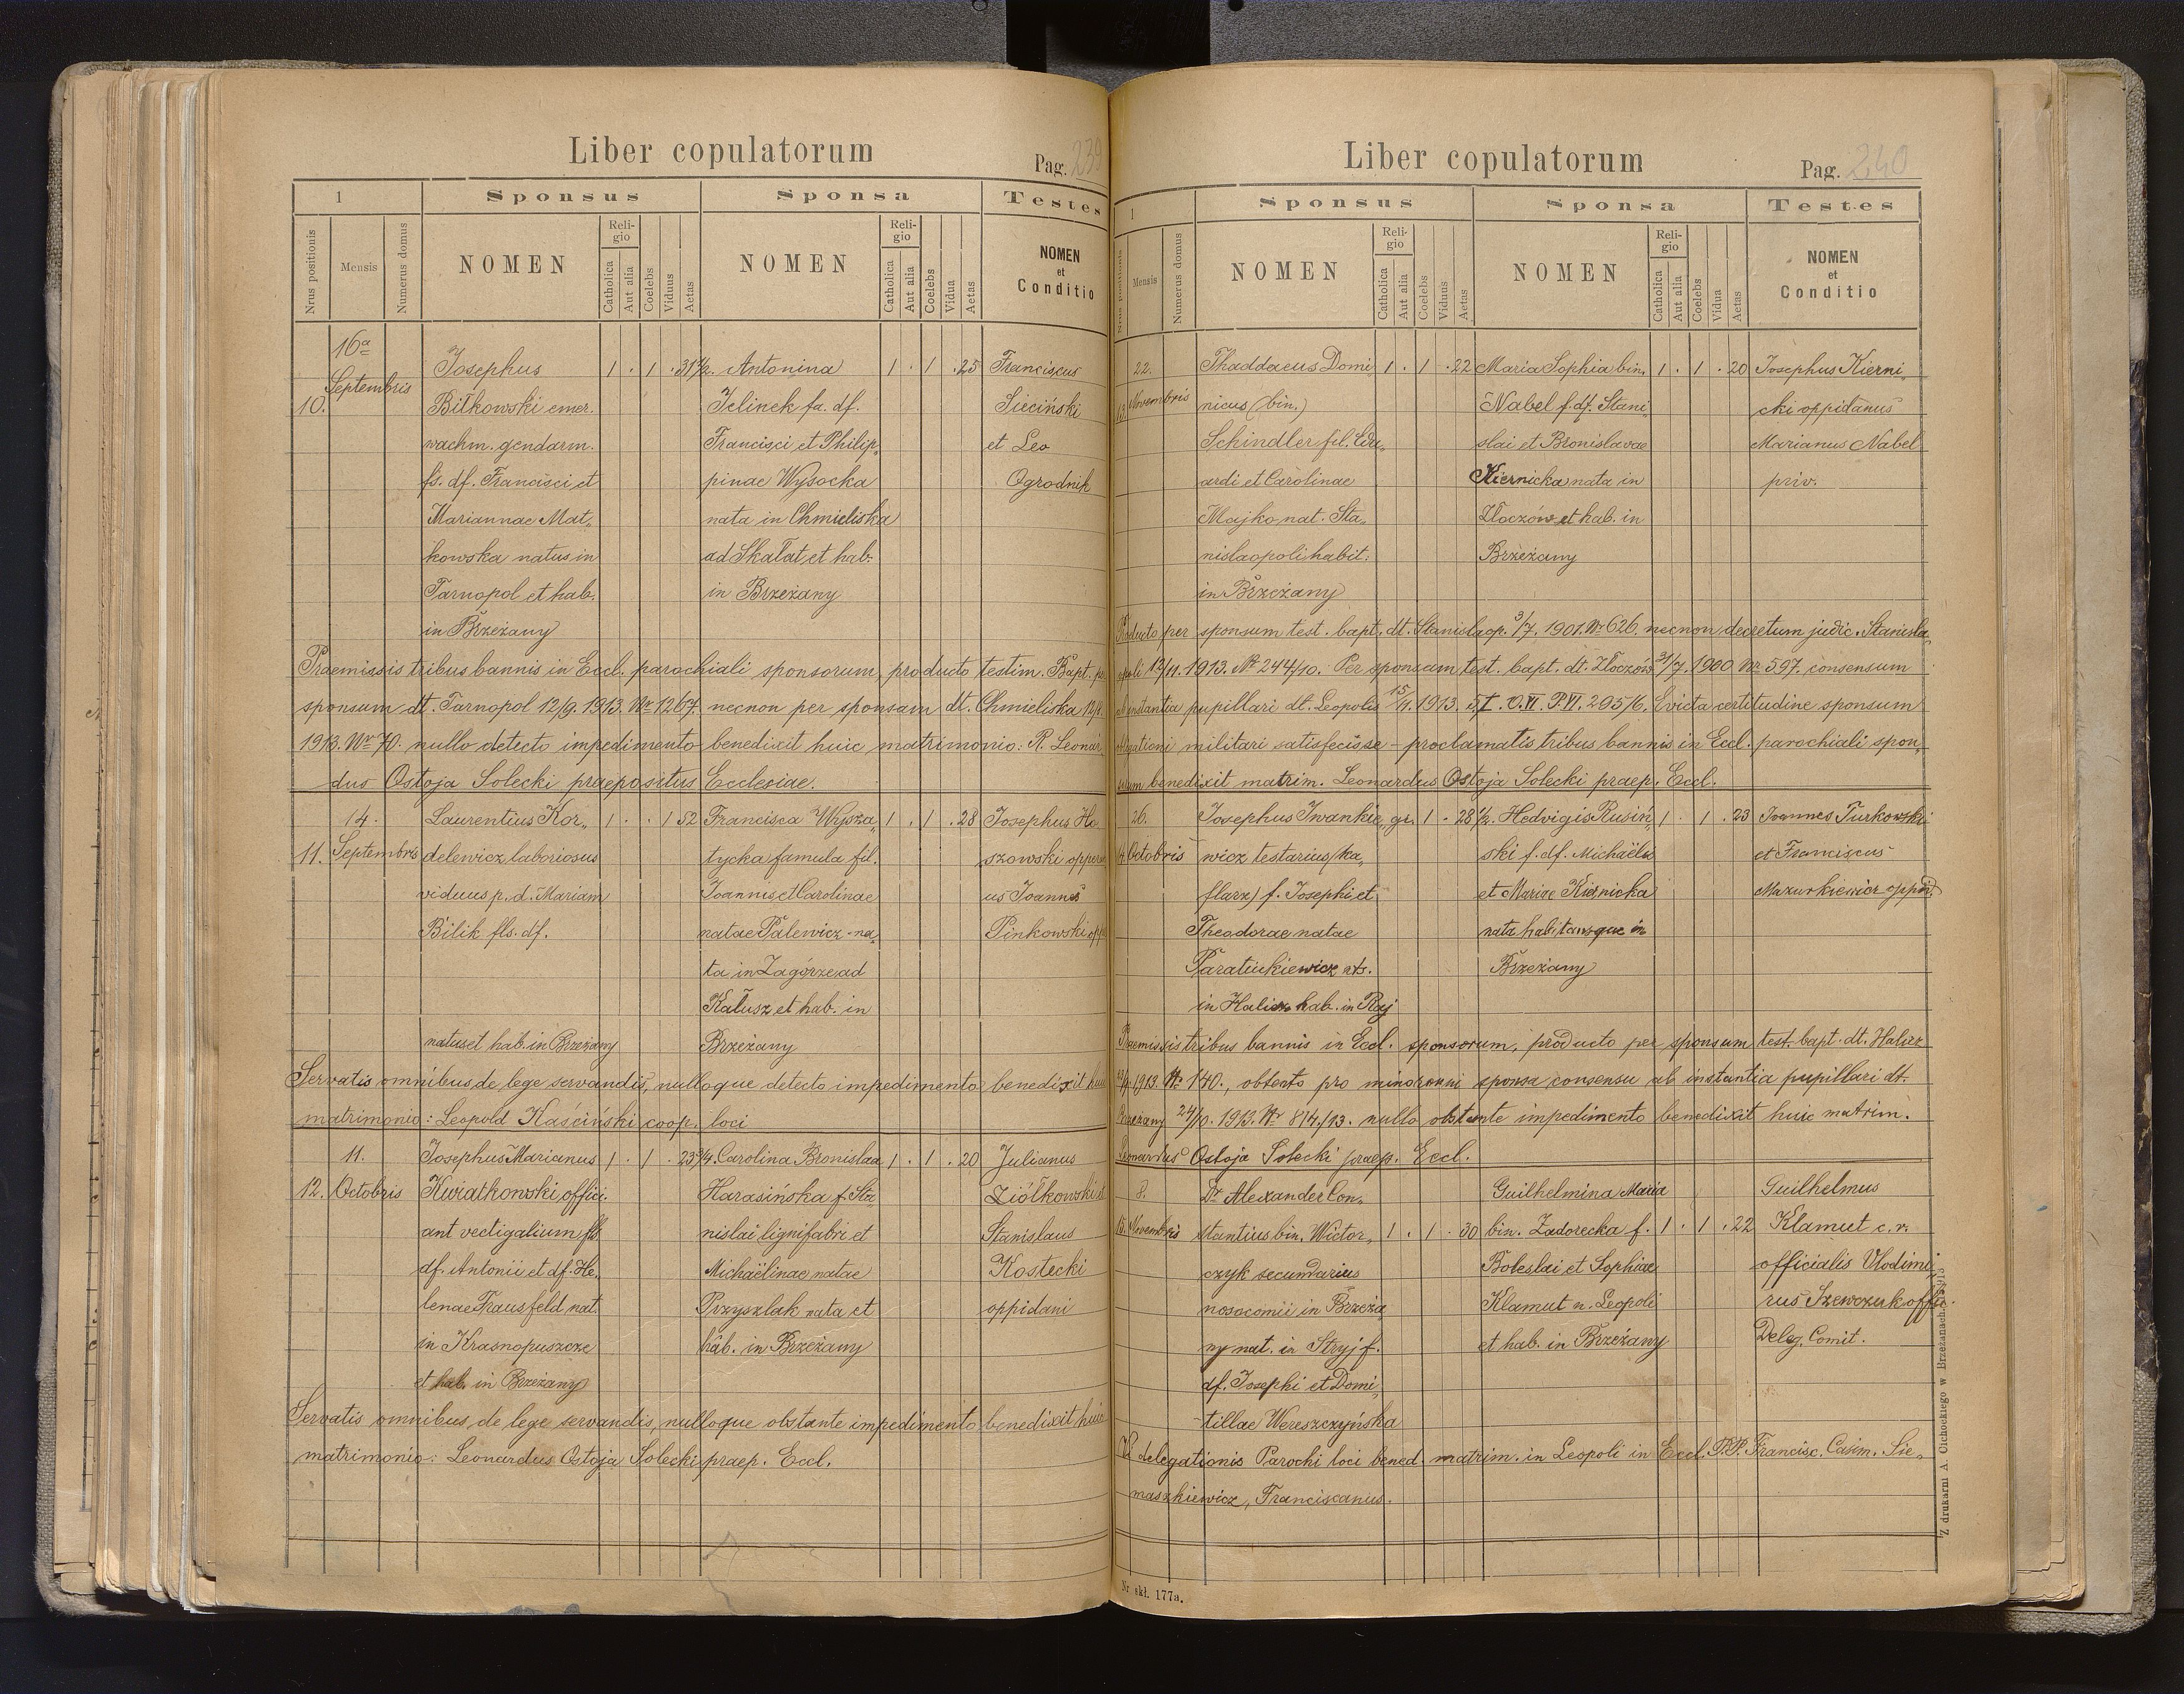 Liber copulatorum
Pag. 239
1
Sponsus
Sponsa
Testes
Nrus positionis
Mensis
Numerus domus
NOMEN
Religio
Catholica
Aut alia
Coelebs
Viduus
Aetas
NOMEN
Religio
Catholica
Aut alia
Coelebs
Vidua
Aetas
NOMEN
et
Conditio
16a
Josephus 1 . 1 . 31½. Antonina 1 . 1 . 25 Franciscus
Septembris
10. Bilkowski emer. Jelinek fa. df. Sieciński
wachm. gendarm. Francisci et Philip„ et Leo
fs. df. Francisci et pinae Wysocka Ogrodnik
Mariannae Mat„ nata in Chmieliska
kowska natus in ad Skałat et hab.
Tarnopol et hab. in Brzeżany
in Brzeżany
Praemissis tribus bannis in Eccl. parochiali sponsorum, producto testim. Bapt. p
sponsum dt. Tarnopol 12/9. 1913. Nr 1267. necnon per sponsam dt. Chmieliska 12/
1913. Nr 70. nullo detecto impedimento benedixit huic matrimonio: R. Leonar
dus Ostoja Solecki praepositus Ecclesiae.
14. Laurentius Kor„ 1 . . 1 52 Francisca Wysza„ 1 . 1 . 28 Josephus Ho
11. Septembris delewicz laboriosus tycka famula fil. szowski
viduus p. d. Mariam Joannis et Carolinae us Joannes
Bilik fls. df. natae Palewicz - na„ Pinkowski
ta in Zagórze ad
Kałusz et hab. in
natus et hab. in Brzeżany Brzeżany
Servatis omnibus de lege servandis, nulloque detecto impedimento benedixit huic
matrimonio: Leopold Kaściński coop. loci
11. Josephus Marianus 1 . 1 . 23¾. Carolina Bronislaa 1 . 1 . 20 Julianus
12. Octobris Kwiatkowski offici. Harasińska f. Sta Ziółkowski
ant vectigalium fls nislai lignifabri et Stanislaus
df. Antonii et df. He„ Michaëlinae natae Kostecki
lenae Trausfeld nat. Przyszlak nata et oppidani
in Krasnopuszcze hab. in Brzeżany
et hab. in Brzeżany
Servatis omnibus, de lege servandis, nulloque obstante impedimento benedixit huic
matrimonio: Leonardus Ostoja Solecki praep. Eccl.
Liber copulatorum
Pag. 240
1
Sponsus
Sponsa
Testes
Nrus positionis
Mensis
Numerus domus
NOMEN
Religio
Catholica
Aut alia
Coelebs
Viduus
Aetas
NOMEN
Religio
Catholica
Aut alia
Coelebs
Vidua
Aetas
NOMEN
et
Conditio
22. Thaddaeus Domi„ 1 . 1 . 22 Maria Sophia bin. 1 . 1 . 20 Josephus Kierni„
13. Novembris nicus (bin.) Nabel f. df. Stani„ cki oppidanus
Schindler fil. Edu„ slai et Bronislavae Marianus Nabel
ardi et Carolinae Kiernicka nata in priv.
Majko nat. Sta„ Złoczów et hab. in
nislaopoli habit. Brzeżany
in Brzeżany
Producto per sponsum test. bapt. dt. Stanislaop. 3/7. 1901. Nr 626. necnon decretum judic. Stanisla„
opoli 13/11. 1913. Nr 244/10. Per sponsam test. bapt. dt. Złoczów 31/7. 1900 Nr 597. consensum
instantia pupillari dt. Leopolis 15/11. 1913. P. VI. 295/6. Evicta certitudine sponsum
obligationi militari satisfecisse - proclamatis tribus bannis in Eccl. parochiali spon„
sorum benedixit matrim. Leonardus Ostoja Solecki praep. Eccl.
26. Josephus Iwankie„ gr. 1 . 28½. Hedvigis Rusiń„ 1 . 1 . 23 Joannes Turkowski
14. Octobris wicz testarius (ka„ ski f. df. Michaëlis et Franciscus
flarz) f. Josephi et et Mariae Kiernicka Mazurkiewicz oppid.
Theodorae natae nata habitansque in
Paratiukiewicz nts. Brzeżany
in Halicz hab. in Raj
Praemissis tribus bannis in Eccl. sponsorum, producto per sponsum test. bapt. dt. Halicz
1913. Nr 140., obtento pro minorenni sponsa consensu ab instantia pupillari dt.
Brzeżany 24/10. 1913. Nr 814/13. nullo obstante impedimento benedixit huic matrim.
Leonardus Ostoja Solecki praep. Eccl.
8. Dr Alexander Con„ Guilhelmina Maria Guilhelmus
15. Novembris stantius bin. Wictor„ 1 . 1 . 30 bin. Zadorecka f. 1 . 1 . 22 Klamut c. r.
czyk secundarius Boleslai et Sophiae officialis Vlodimi„
nosocomii in Brzeża„ Klamut n. Leopoli rus Szewczuk offic.
ny nat. in Stryj f. et hab. in Brzeżany Deleg. Comit.
df. Josephi et Domi„
tillae Wereszczyńska
delegationis Parochi loci bened. matrim. in Leopoli in Eccl. P.P. Francisc. Casim. Sie„
maszkiewicz, Franciscanus.
Nr skł. 177a.
Z drukarni A. Cichockiego w Brzeżanach. 1913